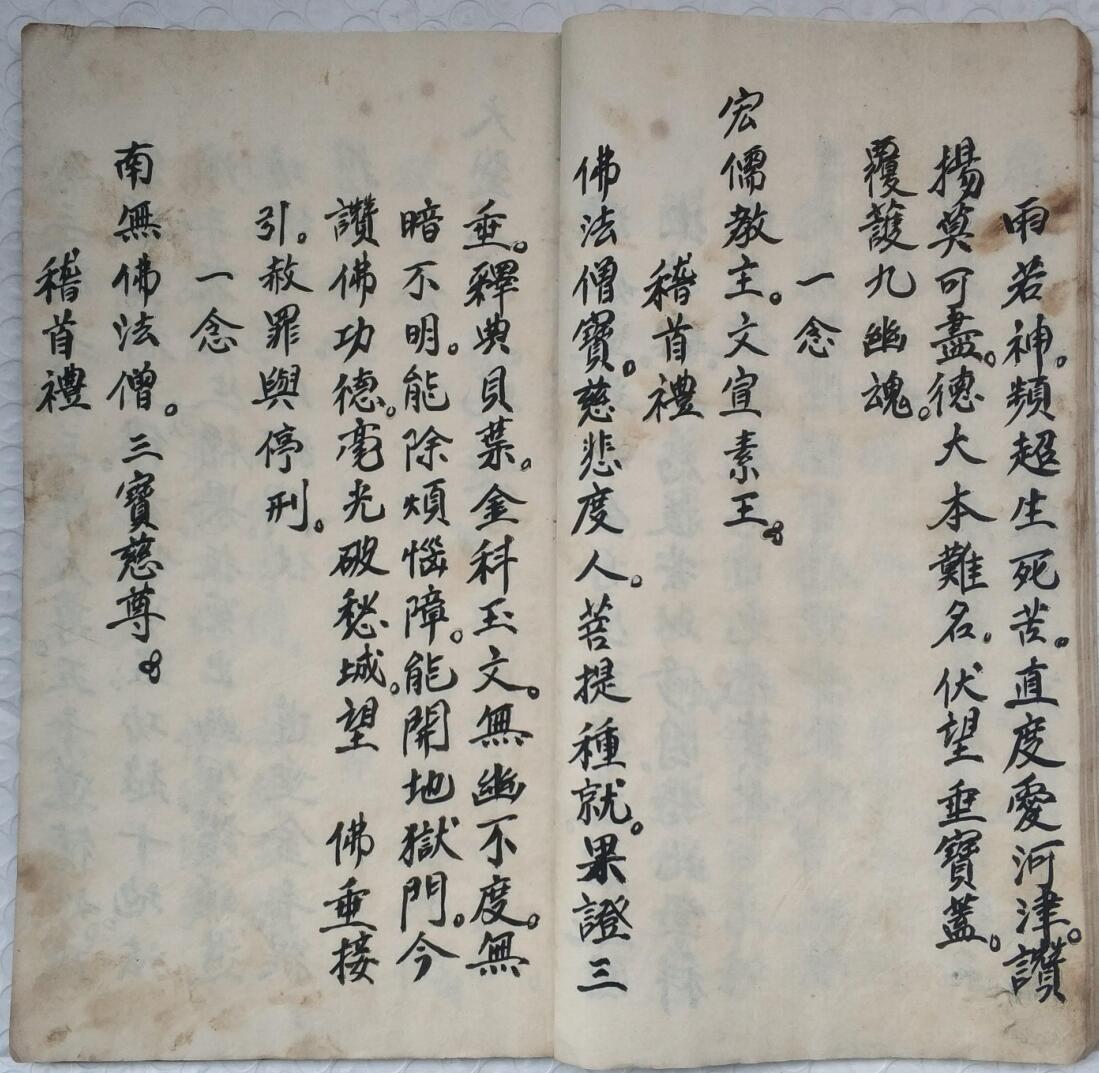 雨若神。頻超生死苦。直度愛河津。讚
揚莫可盡。德大本難名。伏望垂寶蓋。
覆護九幽魂。
一念
宏儒教主。文宣素王。
稽首禮
佛法僧寶。慈悲度人。菩提種就。果證三
垂。釋典貝葉。金科玉文。無幽不度。無
暗不明。能除煩惱障。能開地獄門。今
讚佛功德。毫光破愁城。望 佛垂接
引。赦罪與停刑。
一念
南無佛法僧。三寶慈尊。
稽首禮